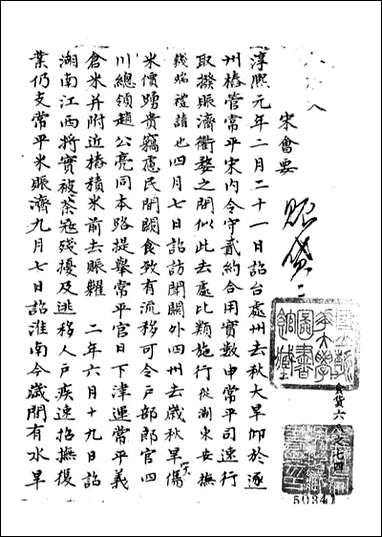 宋會要
賑貸二
淳熙元年二月二十一日詔台處州去秋大旱仰於逐
州樁管常平米內令守貳約合用實數申常平司速行
取撥賑濟衢婺之間似此去處比類施行從浙東安撫
錢端禮請也四月七日詔訪聞關外四州去歲秋旱傷
米價踴貴竊慮民間闕食致有流移可令戶部郎官四
川總領趙公亮同本路提舉常平官日下津運常平義
倉米并附近樁積米前去賑糶 二年六月十九日詔
湖南江西將實被茶寇殘擾及逃移人戶疾速招撫復
業仍支常平米賑濟九月七日詔淮南今歲間有水旱
食貨六八之七四
50341